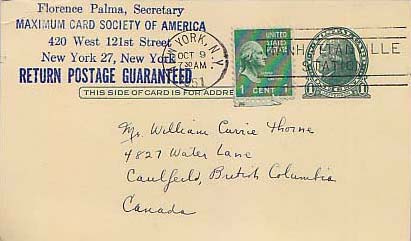 Florence Palma, Secretary
MAXIMUM CARD SOCIETY OF AMERICA
420 West 121st Street
New York 27, New York
RETURN POSTAGE GUARANTEED
YORK, N.Y.
OCT 9
30 AM
UNITED STATES POSTAGE
1 CENT 1
VILLE
STATION
1 1
THIS SIDE OF CARD IS FOR ADDRE
Mr. William Currie Thorne
4827 Water Lane
Caulfeild, British Columbia
Canada